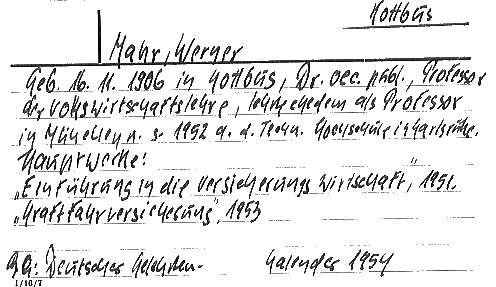 Kottbus
Mahr, Werner
Geb. 16. 11. 1906 in Cottbus, Dr. oec. publ., Professor
der Volkswirtschaftslehre, lehrte ehedem als Professor
in München u. s. 1952 a. d. Techn. Hochschule i Karlsruhe.
Hauptwerke:
"Einführung in die Versicherungswirtschaft", 1951.
"Kraftfahrversicherung", 1953
Qq: Deutscher Gelehrten- Kalender 1954
1/16/7